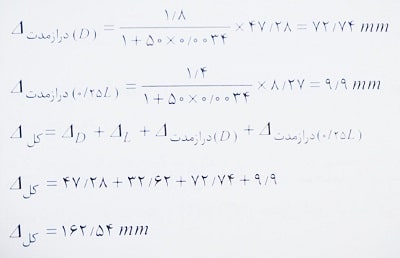 Δ درازمدت (D) = ۱/۸ / (۱+۵۰×۰/۰۰۳۴) × ۴۷/۲۸ = ۷۲/۷۴ mm
Δ درازمدت (۰/۲۵L) = ۱/۴ / (۱+۵۰×۰/۰۰۳۴) × ۸/۲۷ = ۹/۹ mm
Δ کل = Δ D + Δ L + Δ درازمدت (D) + Δ درازمدت (۰/۲۵L)
Δ کل = ۴۷/۲۸ + ۳۲/۶۲ + ۷۲/۷۴ + ۹/۹
Δ کل = ۱۶۲/۵۴ mm